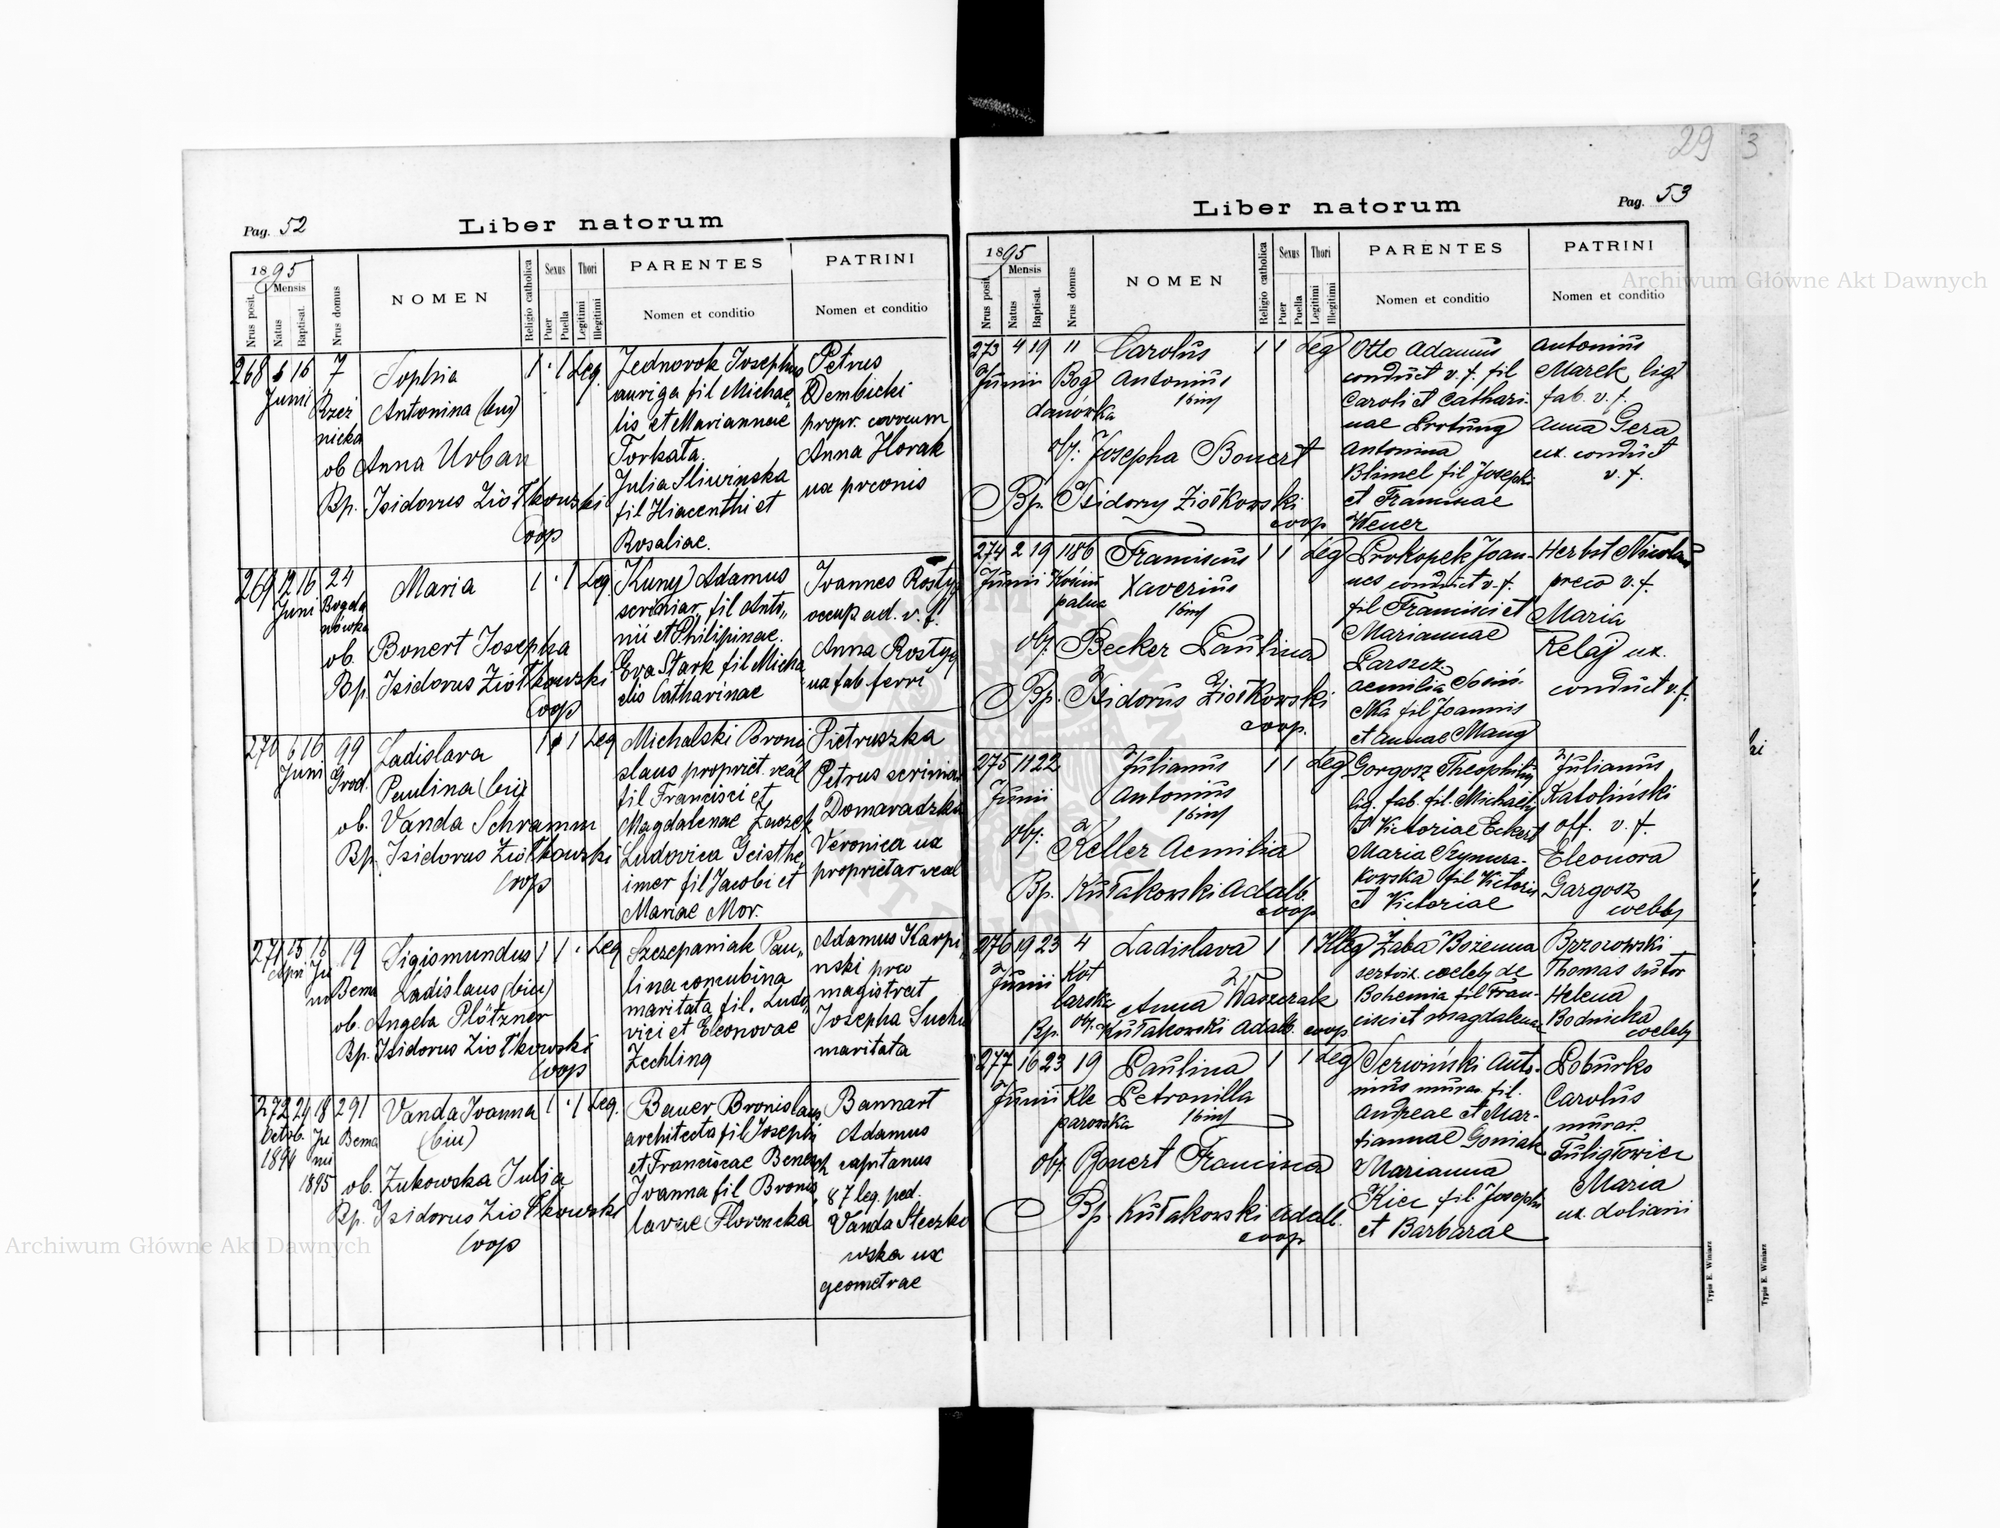 29 3
Pag. 52
Liber natorum
1895
Mensis
Nrus posit.
Natus
Baptisat.
Nrus domus
NOMEN
Religio catholica
Sexus
Puer
Puella
Thori
Legitimi
Illegitimi
PARENTES
Nomen et conditio
PATRINI
Nomen et conditio
268 16 7 Sophia 1 1 Leg.
Juni Antonina (bin)
ob Anna Urban
Bp. Isidorus Ziółkowski
Coop
Jednorok Josephus
auriga fil Michae„
lis et Mariannae
Torkata.
Julia Sliwinska
fil Hiacenthi et
Rosaliae.
Petrus
Dembicki
propr. currum
Anna Horak
ux preonis
269 12 16 24 Maria 1 1 Leg
Juni Bogda
nówka
ob. Bonert Josepha
Bp. Isidorus Ziółkowski
Coop
Kuny Adamus
scriniar. fil Anto„
nii et Philipinae.
Eva Stark fil Micha
elis Catharinae
Ioannes Rostyn
occup ad. v. f.
Anna Rostyn
ux fab ferri
270 6 16 99 Ladislava 1 1 Leg
Juni Grod. Paulina (bin)
ob. Vanda Schramm
Bp. Isidorus Ziółkowski
Coop
Michalski Broni
slaus propriet. real
fil Francisci et
Magdalenae
Ludovica Geisthe„
imer fil Jacobi et
Mariae Mor.
Pietruszka
Petrus scriniar
Domaradzka
Veronica ux
proprietar real
271 15 16 19 Sigismundus 1 1 Leg
Apri Ju
ni Bema Ladislaus (bin)
ob. Angela Plötzner
Bp. Isidorus Ziółkowski
Coop
Szczepaniak Pau„
lina concubina
maritata fil. Ludo„
vici et Eleonorae
Zechling
Adamus Karpi„
nski preo
magistrat
Josepha Sucha
maritata
272 29 18 291 Vanda Ioanna 1 1 Leg.
Octob. Ju
ni Bema (bin)
1894
1895
ob. Zukowska Julia
Bp. Isidorus Ziółkowski
Coop
Bauer Bronislaus
architecta fil Josephi
et Franciscae
Ioanna fil Bronis
lavae Florencka
Bannart
Adamus
capitanus
87 leg. ped.
Vanda Steczko
wska ux
geometrae
Pag. 53
Liber natorum
1895
Mensis
Nrus posit.
Natus
Baptisat.
Nrus domus
NOMEN
Religio catholica
Sexus
Puer
Puella
Thori
Legitimi
Illegitimi
PARENTES
Nomen et conditio
PATRINI
Nomen et conditio
273 4 19 11 Carolus 1 1 Leg
Junii Bog Antonius
danówka
ob. Josepha Bonert
Bp. Isidory Ziółkowski
coop
Otto Adamus
conduct v. f. fil
Caroli et Cathari-
nae Protung
Antonina
Blimel fil Josephi
et Franciscae
Wener
Antonius
Marek lig.
fab. v. f.
Anna Gera
ux. conduct
v. f.
274 2 19 1186 Franciscus 1 1 Leg
Junii Xaverius
ob. Becker Paulina
Bp. Isidorus Ziółkowski
coop.
Prokopek Joan-
nes conduct v. f.
fil Francisci et
Mariannae
Parszcz
Aemilia
fil Joannis
et Annae Maug
Herbst Nicolaus
preco v. f.
Maria
Relaj ux.
conduct v. f.
275 11 22 Julianus 1 1 Leg
Junii Antonius
ob. Keller Aemilia
Bp. Kułakowski Adalb.
coop
Gorgosz Theophilus
lig. fab. fil. Michaelis
et Victoriae Eckert
Maria Szymura-
kowska fil Victoris
et Victoriae
Julianus
Katoliński
off. v. f.
Eleonora
Gargosz
coelebs
276 19 23 4 Ladislava 1 1 Illeg
Junii Kot
larska Anna Waszczak
Bp. ob. Kułakowski Adalb. coop
Żaba Bożenna
serviz. coeleb de
Bohemia fil Fran-
cisci et Magdalenae
Brzozowski
Thomas sutor
Helena
Bodnicka
coeleb
277 16 23 19 Paulina 1 1 Leg
Junii Kle Petronilla
parowska
ob. Bonert Francisca
Bp. Kułakowski Adalb.
coop
Serwiński Anto-
nius murar. fil.
Andreae et Mar-
iannae Goniak
Marianna
Kicz fil. Josephi
et Barbarae
Poburko
Carolus
murar.
Fuligłowicz
Maria
ux. doliarii
Typis E. Winiarz
Typis E. Winiarz
Archiwum Główne Akt Dawnych
Archiwum Główne Akt Dawnych